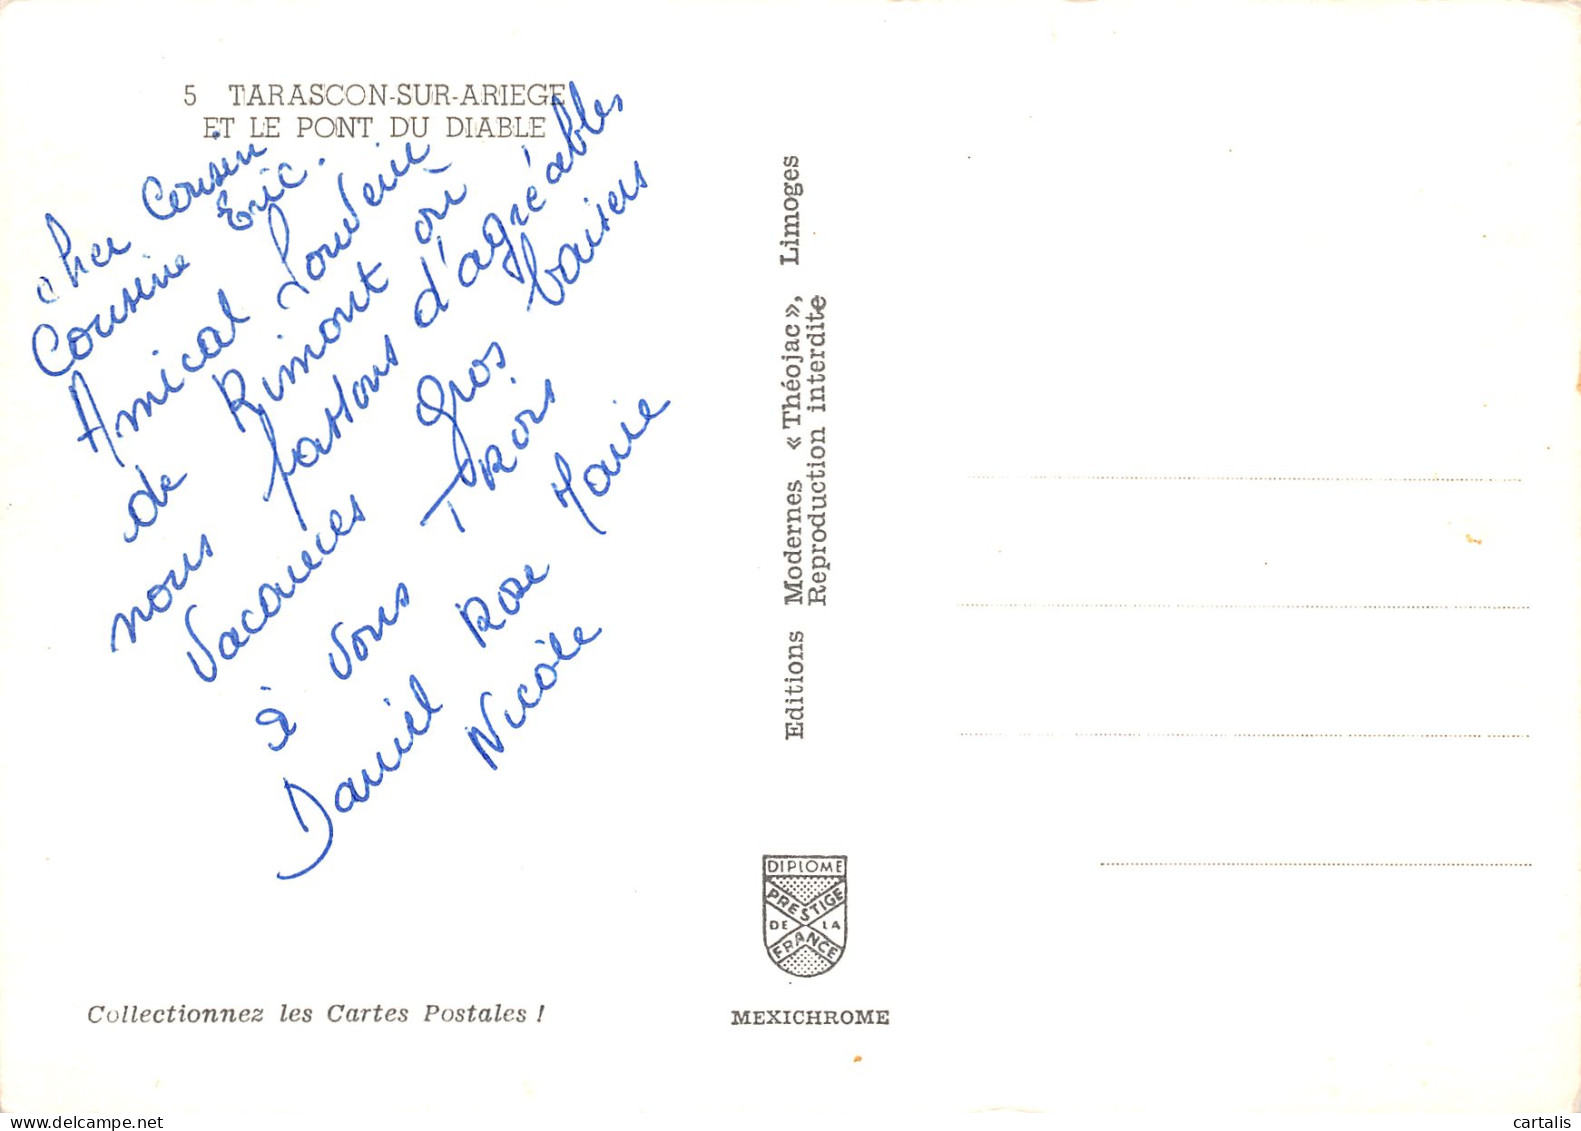 5 TARASCON-SUR-ARIEGE
ET LE PONT DU DIABLE
cher Cousin
Cousine Eric.
Amical Souvenir
de Rimont où
nous passons d'agréables
Vacances Gros baisers
à vous TROIS
Daniel Rose Marie
Nicole
Editions Modernes « Théojac », Limoges
Reproduction interdite
DIPLOME
PRESTIGE
DE LA
FRANCE
MEXICHROME
Collectionnez les Cartes Postales !
cartalis